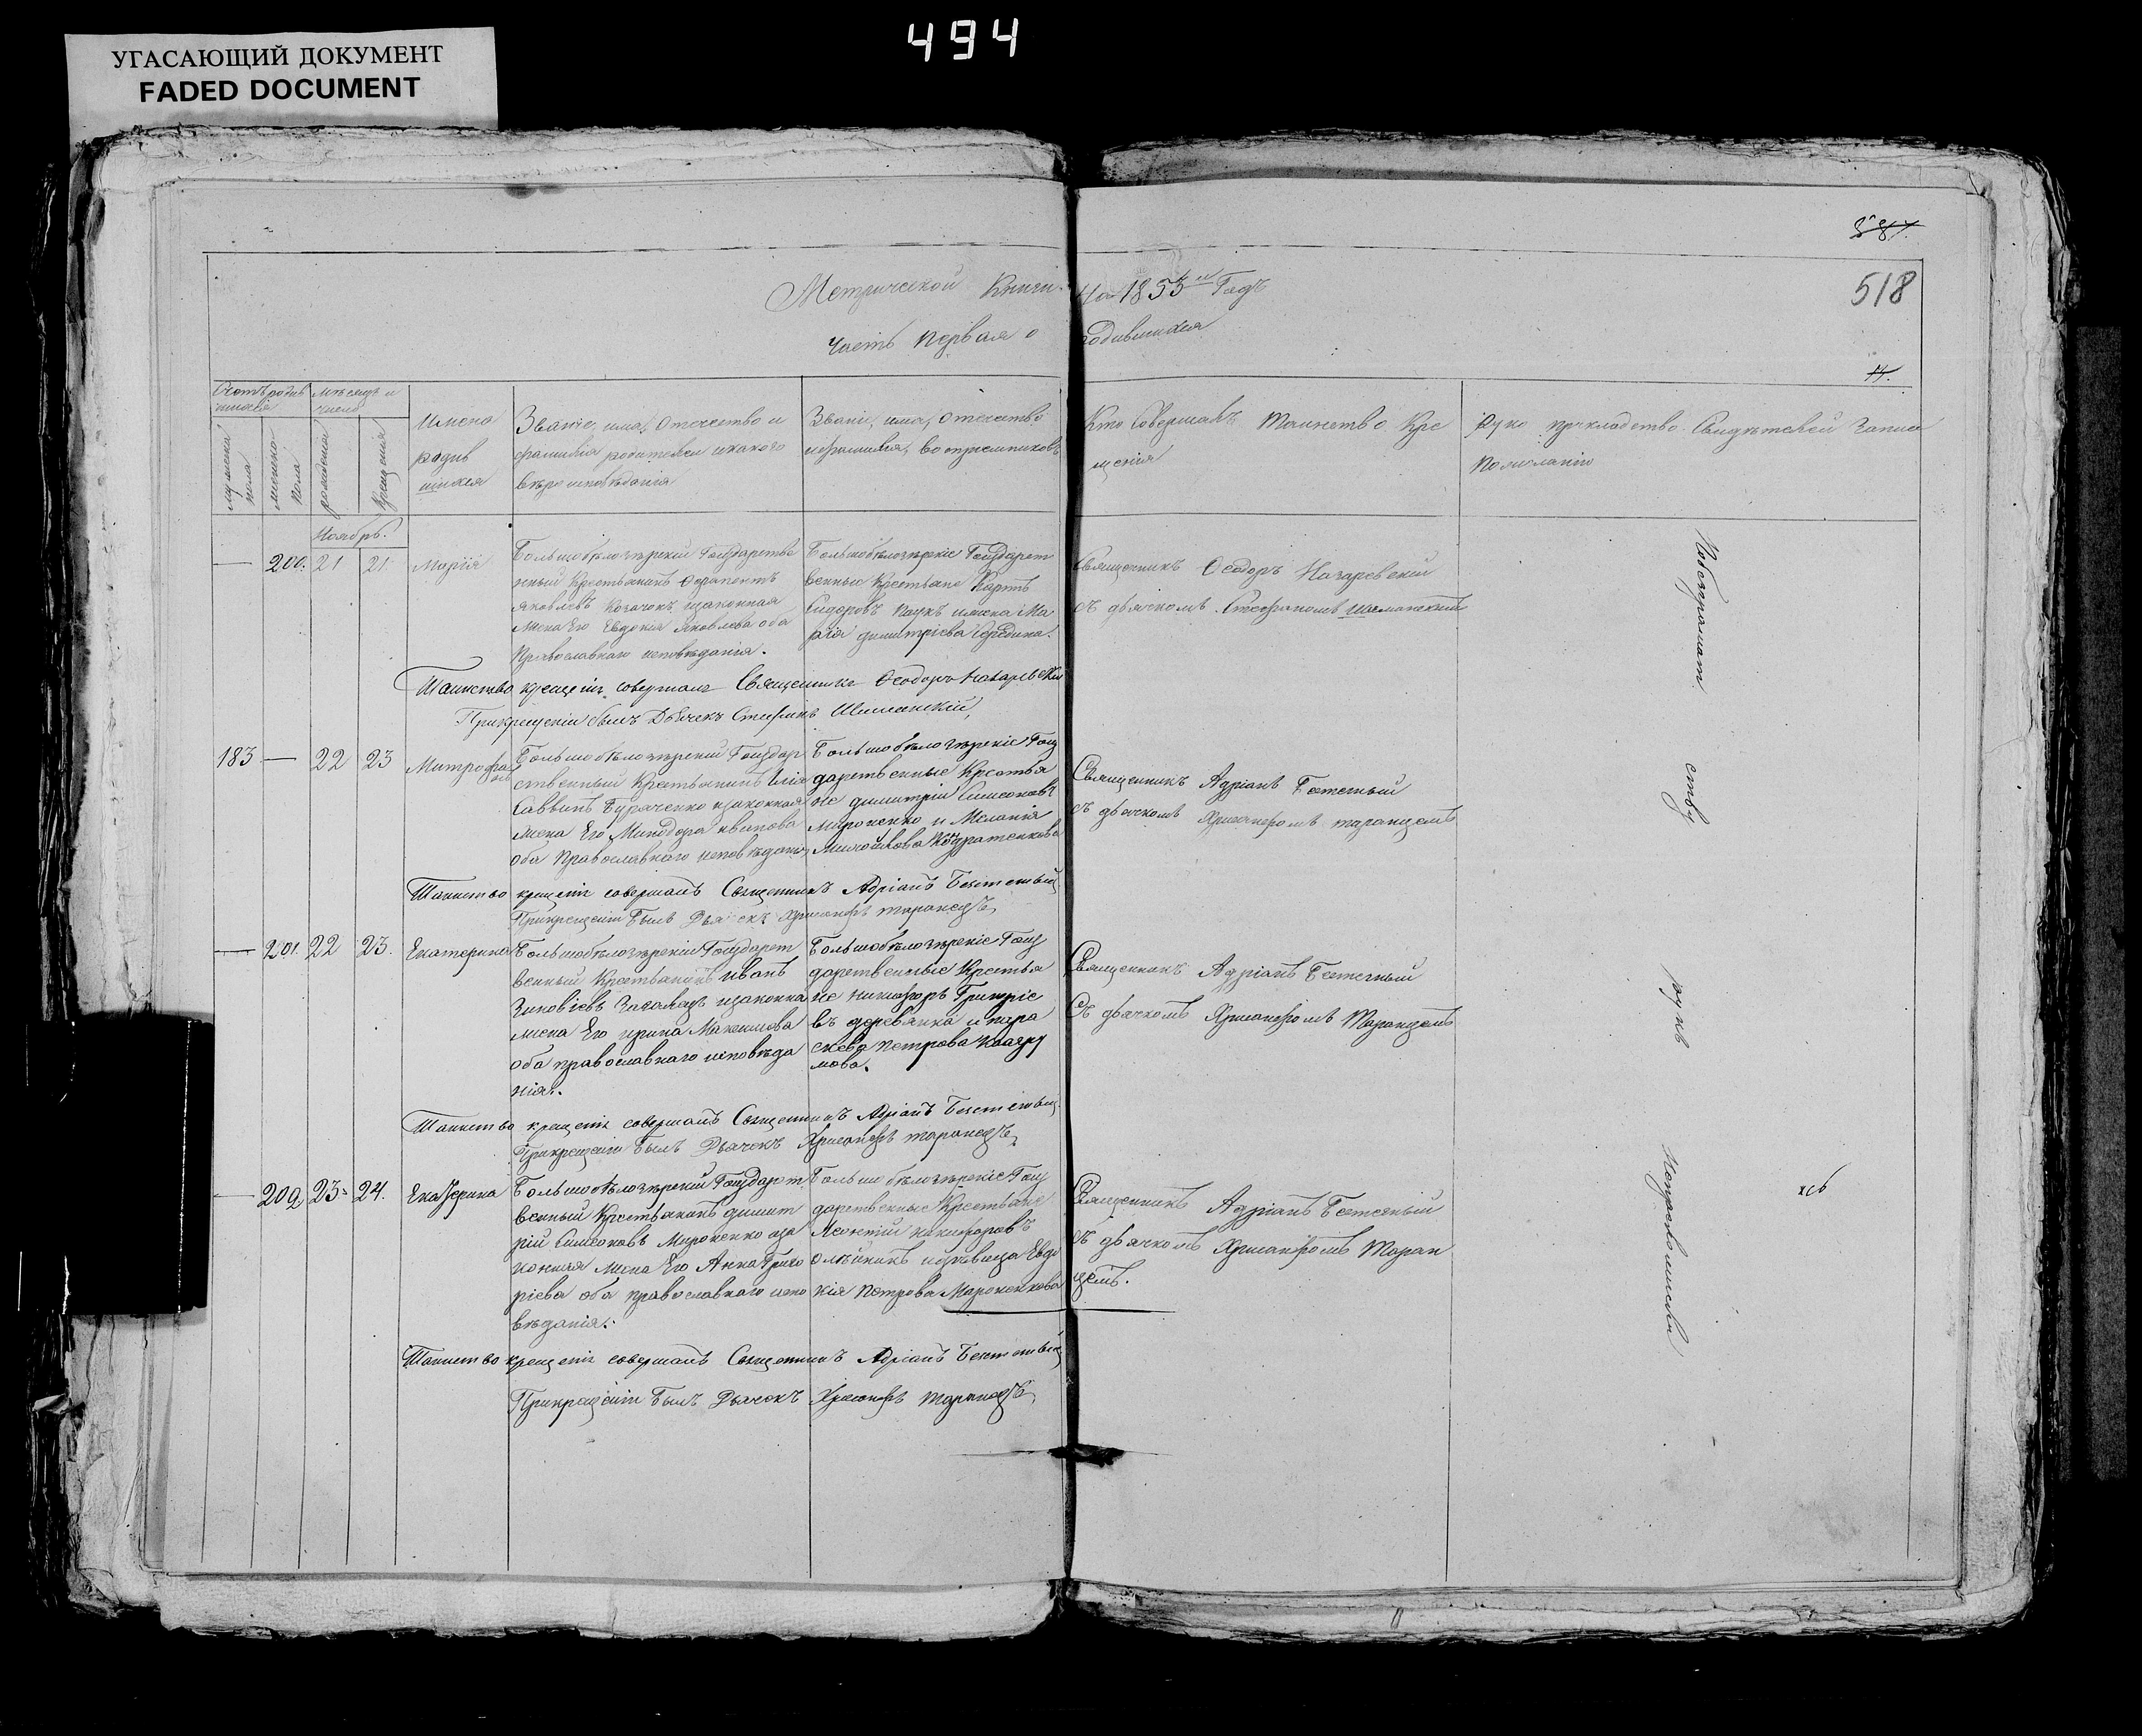 494
УГАСАЮЩИЙ ДОКУМЕНТ
FADED DOCUMENT
518
Метрической Книги на 1855й Годъ
Часть Первая о родившихся
Счетъ родив
шихся
мѣсяцъ и
число
мужеска
пола
женска
пола
рожденія
крещенія
Имена
родив
шихся
Званіе, имя, отечество и
фамилія родителей и какого
вѣроисповѣданія
Званіе, имя, отечество
и фамилія, воспріемниковъ
Кто Совершалъ Таинство Кре
щенія
Руко прикладство Свидѣтелей записи
По желанію
Ноябрь.
200. 21 21 Марія
Большобѣлозѣрскій Государстве
нный Крестьянинъ Ферапонтъ
Яковлевъ Козачокъ изаконная
жена Его Евдокія Яковлева оба
Православнаго исповѣданія.
Большобѣлозѣрскіе Государст
венные Крестьяне Карпъ
Сидоровъ Паукъ и жена Ма
рія Димитріева Середина.
Священникъ Феодоръ Назаревскій
съ дьячкомъ Стефаномъ Шиманскимъ
Таинство крещенія совершалъ Священникъ Феодоръ Назаревскій
При крещеніи былъ Дьячекъ Стефанъ Шиманскій,
183 22 23 Митрофанъ
Большобѣлозѣрскій Государ
ственный Крестьянинъ Илія
Саввинъ Бураченко изаконная
жена Его Минодора
оба Православнаго исповѣданія
Большобѣлозѣрскіе Госу
дарственные Крестья
не Димитрій Симеоновъ
Мироненко и Меланія
Кондратенкова
Священникъ Адріанъ
съ дьячкомъ Хрисанфомъ Таранцемъ
Таинство крещенія совершалъ Священникъ Адріанъ
При крещеніи Былъ Дьячекъ Хрисанфъ Таранецъ
201. 22 23. Екатерина
Большобѣлозѣрскій Государст
венный Крестьянинъ Иванъ
Зиновіевъ изаконна
жена Его Ирина Максимова
оба православнаго исповѣда
нія.
Большобѣлозѣрскіе Госу
дарственные Крестья
не Никифоръ Григоріе
въ Деревянка и Пара
скева Петрова
мова.
Священникъ Адріанъ
Съ дьячкомъ Хрисанфомъ Таранцемъ
Таинство крещенія совершалъ Священникъ Адріанъ
При крещеніи Былъ Дьячекъ Хрисанфъ Таранецъ
202 23 24. Екатерина
Большобѣлозѣрскій Государст
венный Крестьянинъ Димит
рій Симеоновъ Мироненко иза
конная жена Его Анна Григо
ріева оба православнаго испо
вѣданія.
Большобѣлозѣрскіе Госу
дарственные Крестьяне
Леонтій Никифоровъ
Олѣйникъ и дѣвица Евдо
кія Петрова Мироненкова
Священникъ Адріанъ
съ дьячкомъ Хрисанфомъ Таран
цемъ.
Таинство крещенія совершалъ Священникъ Адріанъ
При крещеніи Былъ Дьячекъ Хрисанфъ Таранецъ